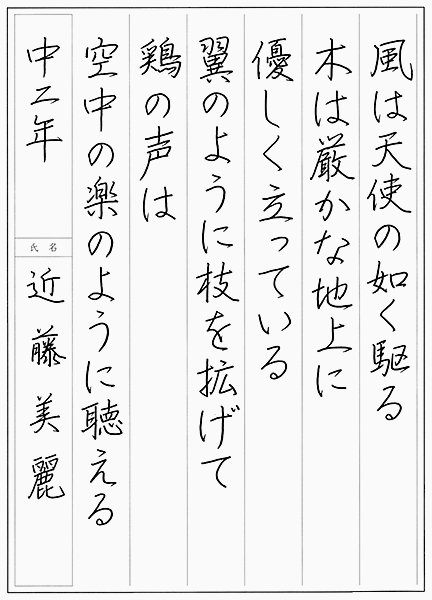 風は天使の如く駆る
木は厳かな地上に
優しく立っている
翼のように枝を拡げて
鶏の声は
空中の楽のように聴える
中二年
氏名
近藤美麗